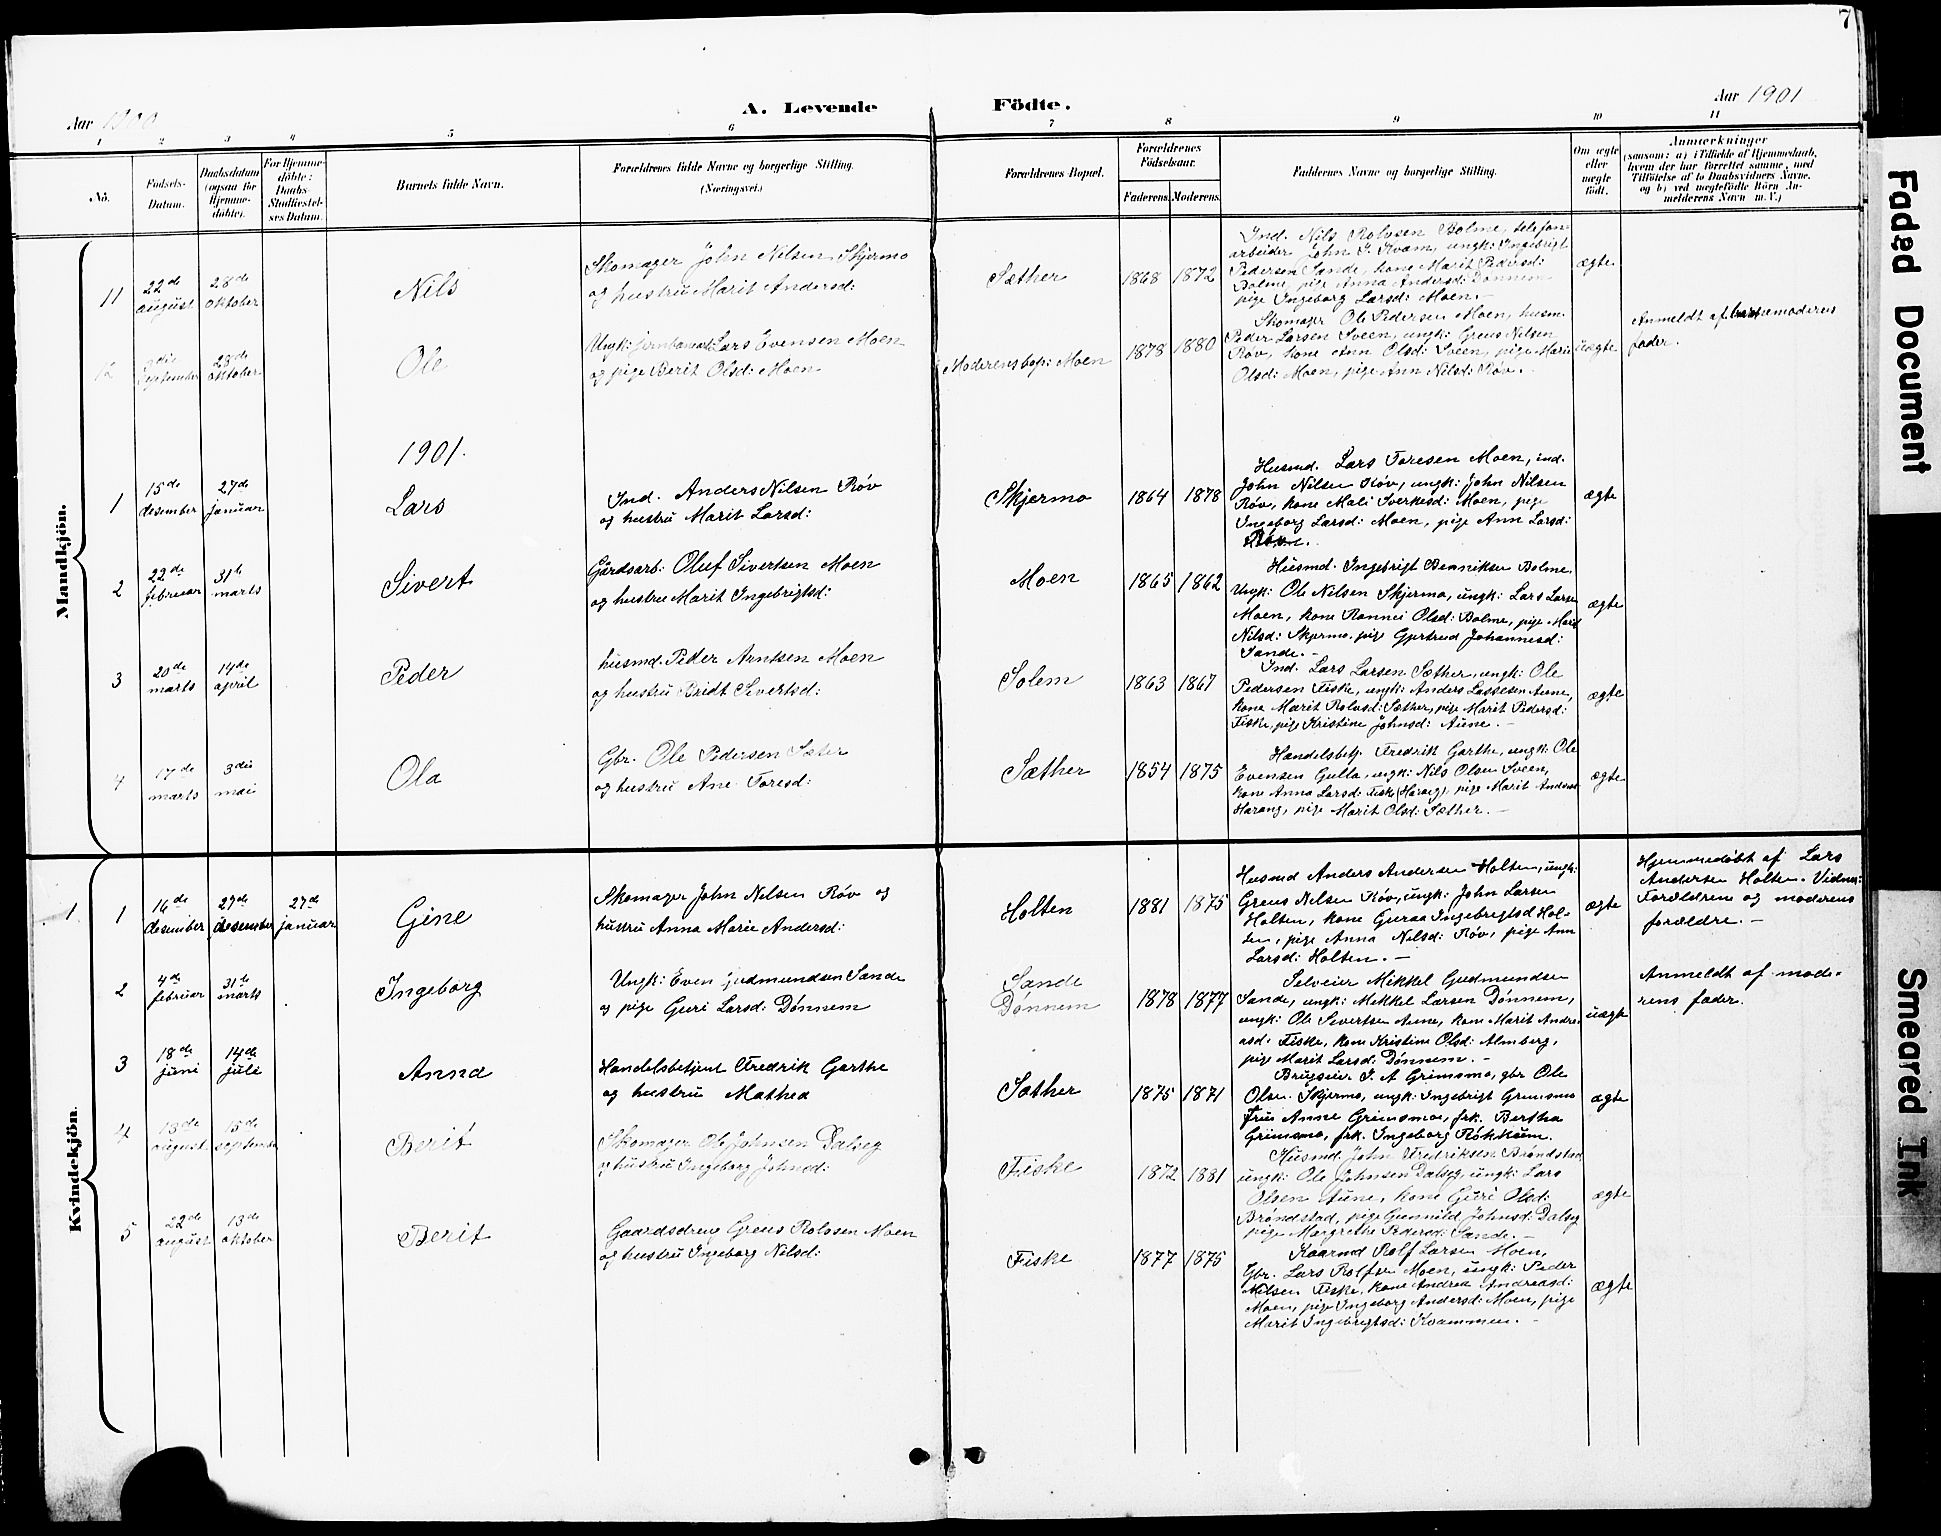 7
A. Levende Födte.
Aar 1900
Aar 1901
1 2 3 4 5 6 7 8 9 10 11
Nö.
Födsels-
Datum.
Daabsdatum
(ogsaa for
Hjemme-
döbte).
For Hjemme-
döbte:
Daabs-
Stadfæstel-
ses Datum.
Barnets fulde Navn.
Forældrenes fulde Navne og borgerlige Stilling.
(Næringsvei.)
Forældrenes Bopæl.
Forældrenes
Födselsaar.
Faderens. Moderens.
Faddernes Navne og borgerlige Stilling.
Om ægte
eller
uægte
födt.
Anmærkninger
(saasom: a) i Tilfælde af Hjemmedaab,
hvem der har forrettet samme, med
Tilföielse af to Daabsvidners Navne,
og b) ved uægtefödte Börn An-
melderens Navn m. V.)
Mandkjön.
11
22de
august
28de
oktober
Nils
Skomager John Nilsen Skjermo
og hustru Marit Andersd:
Sæther
1868 1872
Ind. Nils Rolvsen Bolme, telefon
arbeider John J. Kvam, ungk: Ingebrigt
Pedersen Sande, kone Marit Pedersd:
Bolme, pige Anna Andersd: Dønnem
pige Ingeborg Larsd: Moen.-
ægte
12
september
28de
oktober
Ole
Ungk: jernbanearb: Lars Evensen Moen
og pige Berit Olsd: Moen
Moderens bop: Moen
1878 1880
Skomager Ole Pedersen Moen, husm.
Peder Larsen Sveen, ungk: Greus Nilsen
Røv, kone Ann Olsd: Sveen, pige Marie
Olsd: Moen, pige Ann Nilsd: Røv.
uægte
Anmeldt af barnemoderens
fader.
1901.
1
15de
desember
27de
januar
Lars
Ind. Anders Nilsen Røv
og hustru Marit Larsd:
Skjermo
1864 1878
Husmd. Lars Toresen Moen, ind.
John Nilsen Røv, ungk: John Nilsen
Røv, kone Mali Sverkesd: Moen, pige
Ingeborg Larsd: Moen, pige Ann Larsd:
ægte
2
22de
februar
31te
marts
Sivert
Gårdsarb: Oluf Sivertsen Moen
og hustru Marit Ingebrigtsd:
Moen
1865 1862
Husmd. Ingebrigt Benriksen Bolme,
Ungk: Ole Nilsen Skjermo, ungk: Lars Larsen
Moen, kone Rannei Olsd: Bolme, pige Marit
Nilsd: Skjermo, pige Gjertrud Johannesd:
Sande.-
ægte
3
20de
marts
14de
april
Peder
husmd. Peder Arntsen Moen
og hustru Bridt Sivertsd:
Solem
1863 1867
Ind. Lars Larsen Sæther, ungk: Ole
Pedersen Fiske, ungk: Anders Lassesen Aune,
kone Marit Rolvsd: Sæther, pige Marit Pedersd:
Fiske, pige Kristine Johnsd: Aune.-
ægte
4
17de
marts
3die
mai
Ola
Gbr. Ole Pedersen Sæter
og hustru Ane Toresd:
Sæther
1854 1875
Handelsbetj. Fredrik Garthe, ungk: Ole
Evensen Gulla, ungk: Nils Olsen Sveen,
kone Anna Larsd: Fiske (Harang), pige Marit Andersd:
Harang, pige Marit Olsd: Sæther.-
ægte
Kvindekjön.
1
1
16de
desember
27de
desember
27de
januar
Gine
Skomager John Nilsen Røv og
hustru Anna Marie Andersd:
Holten
1881 1875
Husmd Anders Andersen Holten, ungk:
Greus Nilsen Røv, ungk: John Larsen
Holten, kone Guraa Ingebrigtsd Hol-
ten, pige Anna Nilsd: Røv, pige Ann
Larsd: Holten.-
ægte
Hjemmedøbt af Lars
Andersen Holten. Vidner:
Forældrene og moderens
forældre.-
2
4de
februar
31te
marts
Ingeborg
Ungk: Even Gudmundsen Sande
og pige Guri Larsd: Dønnem
Sande
Dønnem
1878 1877
Selveier Mikkel Gudmundsen
Sande, ungk: Mikkel Larsen Dønnem,
ungk: Ole Sivertsen Aune, kone Marit Andre-
asd: Fiske, kone Kristine Olsd: Almberg,
pige Marit Larsd: Dønnem.-
uægte
Anmeldt af mode-
rens fader.
3
18de
juni
14de
juli
Anna
Handelsbetjent Fredrik Garthe
og hustru Mathea
Sæther
1875 1871
Brugseier J. A Grimsmo, gbr Ole
Olsen Skjermo, ungk: Ingebrigt Grimsmo
Frue Anne Grimsmo, frk. Bertha
Grimsmo, frk. Ingeborg Røkkum.
ægte
4
13de
august
15de
september
Berit
Skomager Ole Johnsen Dalseg
og hustru Ingeborg Johnsd:
Fiske
1872 1881
Husmd. John Fredriksen Brøndstad
ungk: Ole Johnsen Dalseg, ungk: Lars
Olsen Aune, kone Guri Olsd:
Brøndstad, pige Gunnild Johnsd: Dalseg
pige Margrethe Pedersd: Sande.-
ægte
5
22de
august
13de
oktober
Berit
Gaardsdreng Greus Rolvsen Moen
og hustru Ingeborg Nilsd:
Fiske
1877 1875
Kaarmd Rolf Larsen Moen,
Gbr. Lars Rolfsen Moen, ungk: Peder
Nilsen Fiske, kone Andrea Andreasd:
Moen, pige Ingeborg Andersd: Moen, pige
Marit Ingebrigtsd: Kvammen.-
ægte
Faded Document
Smeared Ink